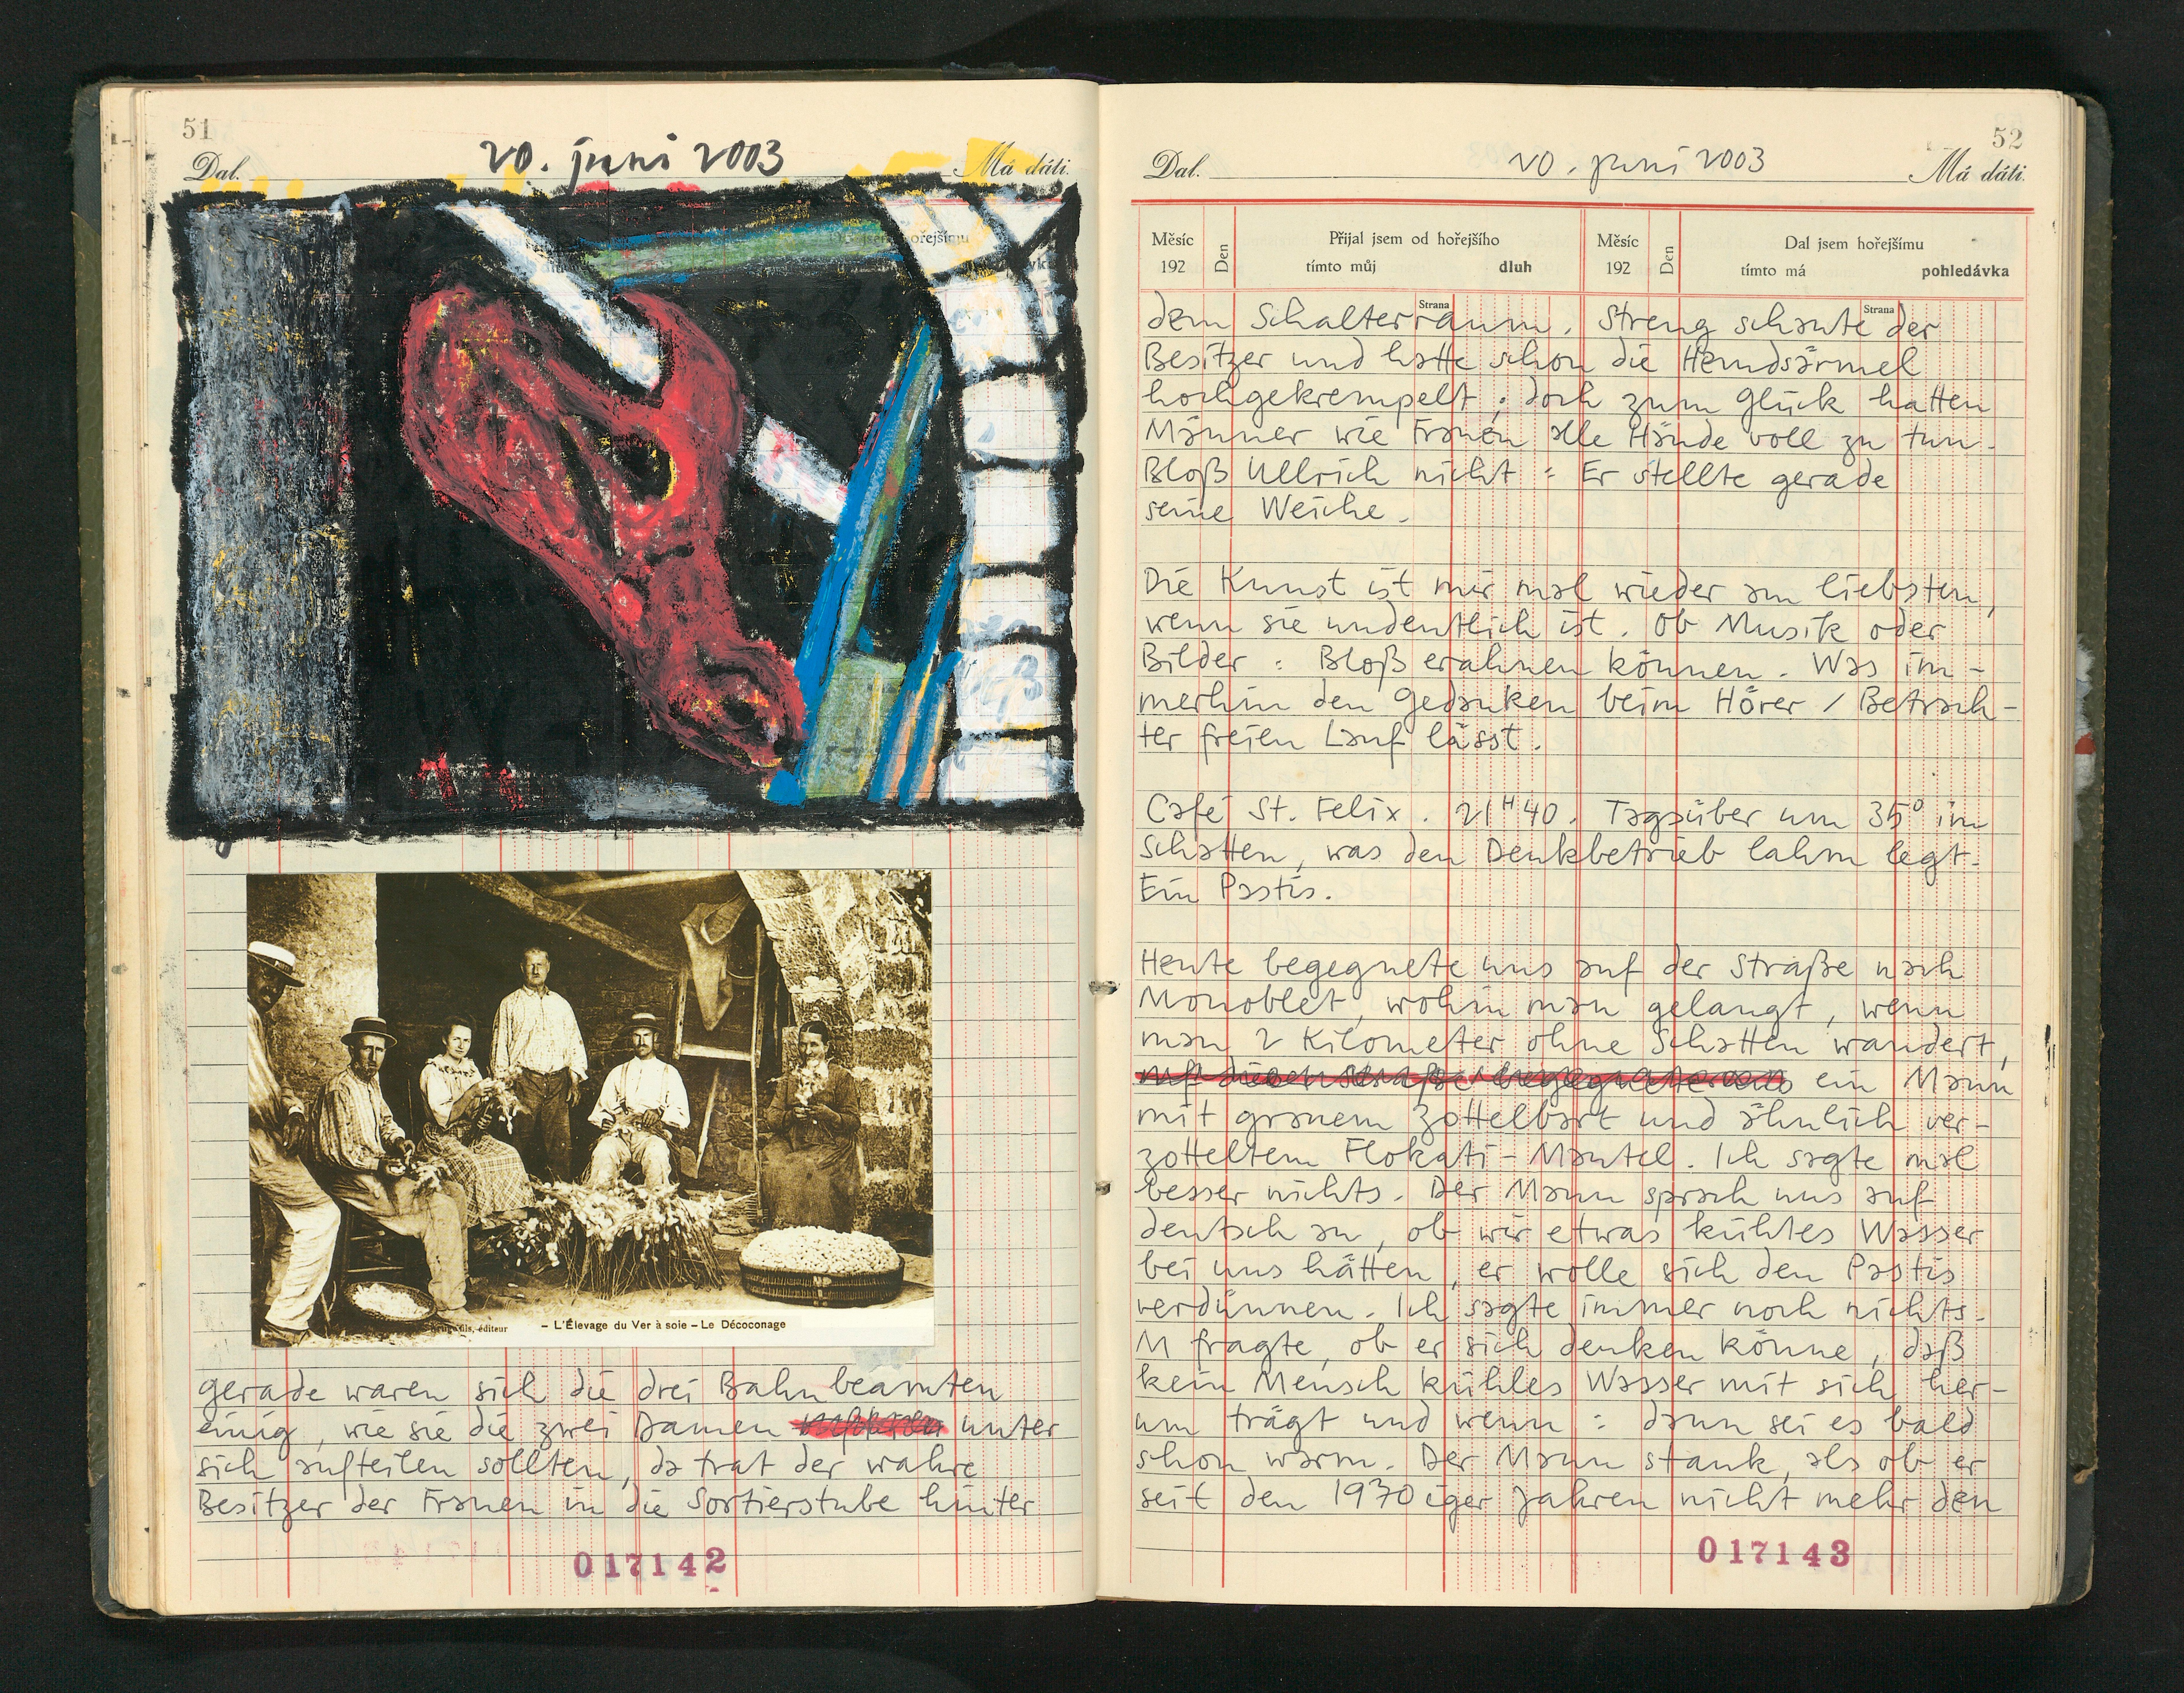 51
Dal.
20. juni 2003
Má dáti.
- L'Élevage du Ver à soie - Le Décoconage
fils, éditeur
gerade waren sich die drei Bahnbeamten
einig, wie sie die zwei Damen unter
sich aufteilen sollten, da trat der wahre
Besitzer der Frauen in die Sortierstube hinter
017142
52
Dal.
20. juni 2003
Má dáti.
Měsíc
192
Den
Přijal jsem od hořejšího
tímto můj dluh
Měsíc
192
Den
Dal jsem hořejšímu
tímto má pohledávka
Strana
Strana
dem Schalterraum. Streng schaute der
Besitzer und hatte schon die Hemdsärmel
hochgekrempelt; doch zum Glück hatten
Männer wie Frauen alle Hände voll zu tun.
Bloß Ullrich nicht: Er stellte gerade
seine Weiche.
Die Kunst ist mir mal wieder am liebsten,
wenn sie undeutlich ist. Ob Musik oder
Bilder: Bloß erahnen können. Was im-
merhin den Gedanken beim Hörer / Betrach-
ter freien Lauf lässt.
Café St. Felix. 21H40. Tagsüber um 35° im
Schatten, was den Denkbetrieb lahm legt.
Ein Pastis.
Heute begegnete uns auf der Straße nach
Monoblet, wohin man gelangt, wenn
man 2 Kilometer ohne Schatten wandert,
auf dieser Straße begegnete uns ein Mann
mit grauem Zottelbart und ähnlich ver-
zotteltem Flokati-Mantel. Ich sagte mal
besser nichts. Der Mann sprach uns auf
deutsch an, ob wir etwas kühles Wasser
bei uns hätten, er wolle sich den Pastis
verdünnen. Ich sagte immer noch nichts.
M fragte, ob er sich denken könne, daß
kein Mensch kühles Wasser mit sich her-
um trägt und wenn: dann sei es bald
schon warm. Der Mann stank, als ob er
seit den 1970iger Jahren nicht mehr den
017143